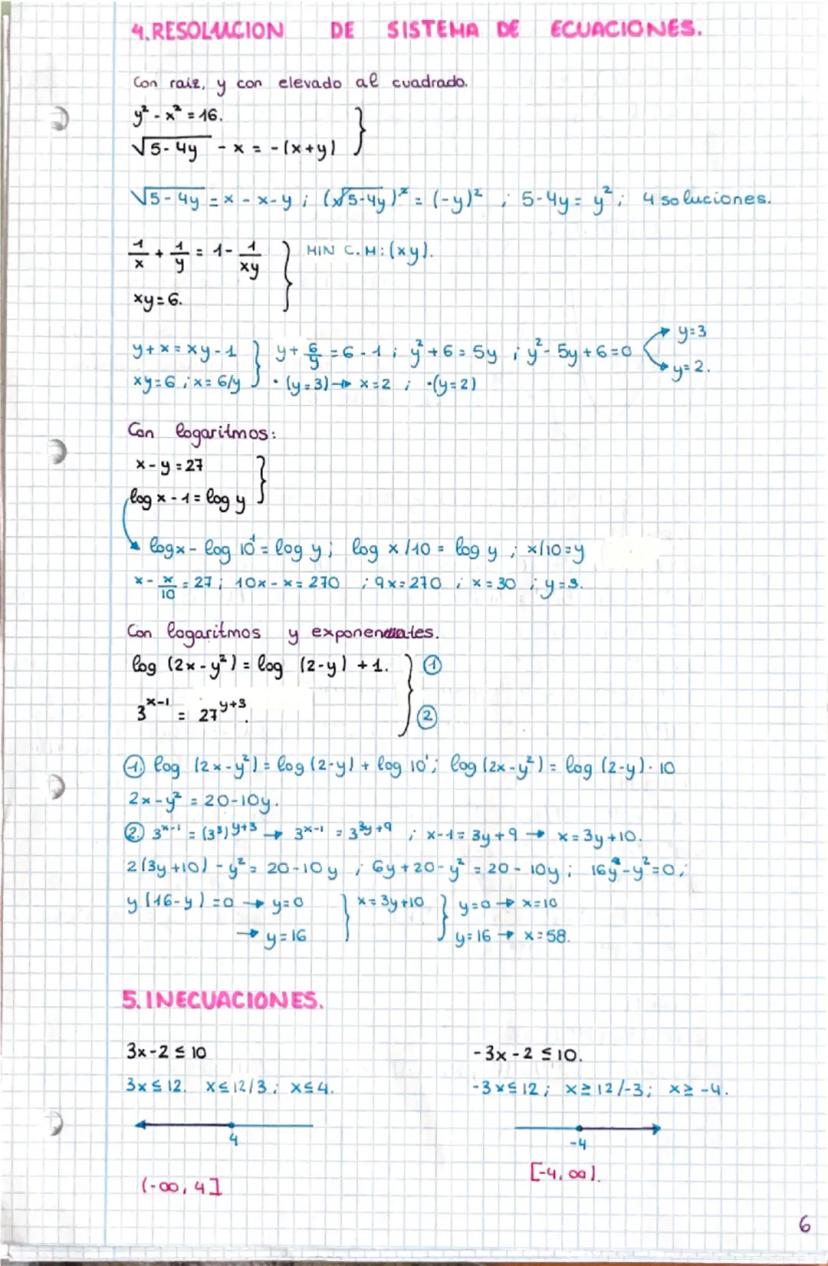 4. RESOLUCION DE SISTEMA DE ECUACIONES.
Con raiz, y con elevado al cuadrado.
y² - x² = 16.
√5-4y - x = -(x+y) }
√5-4y = x - x - y ; (√5-4y)² = (-y)² ; 5-4y = y² ; 4 soluciones.
1/x + 1/y = 1 - 1/xy } MIN C.M: (xy).
xy = 6.
y + x = xy - 1 } y + 6/y = 6 - 1 ; y² + 6 = 5y ; y² - 5y + 6 = 0 → y = 3 → y = 2.
xy = 6 ; x = 6/y · (y = 3) → x = 2 ; · (y = 2)
Con logaritmos:
x - y = 27
log x - 1 = log y }
log x - log 10¹ = log y ; log x/10 = log y ; x/10 = y
x - x/10 = 27 ; 10x - x = 270 ; 9x = 270 ; x = 30 ; y = 3.
Con logaritmos y exponenciales.
log (2x - y²) = log (2-y) + 1. } ①
3^x-1 = 27^y+3. ②
① log (2x - y²) = log (2-y) + log 10¹ ; log (2x - y²) = log (2-y) · 10
2x - y² = 20 - 10y.
② 3^x-1 = (3³)^y+3 → 3^x-1 = 3^3y+9 ; x - 1 = 3y + 9 → x = 3y + 10.
2(3y+10) - y² = 20 - 10y ; 6y + 20 - y² = 20 - 10y ; 16y - y² = 0 ;
y (16-y) = 0 → y = 0 } x = 3y + 10 } y = 0 → x = 10
→ y = 16 y = 16 → x = 58.
5. INECUACIONES.
3x - 2 ≤ 10 -3x - 2 ≤ 10.
3x ≤ 12. x ≤ 12/3 ; x ≤ 4. -3x ≤ 12 ; x ≥ 12/-3 ; x ≥ -4.
4 -4
(-∞, 4] [-4, ∞).
6